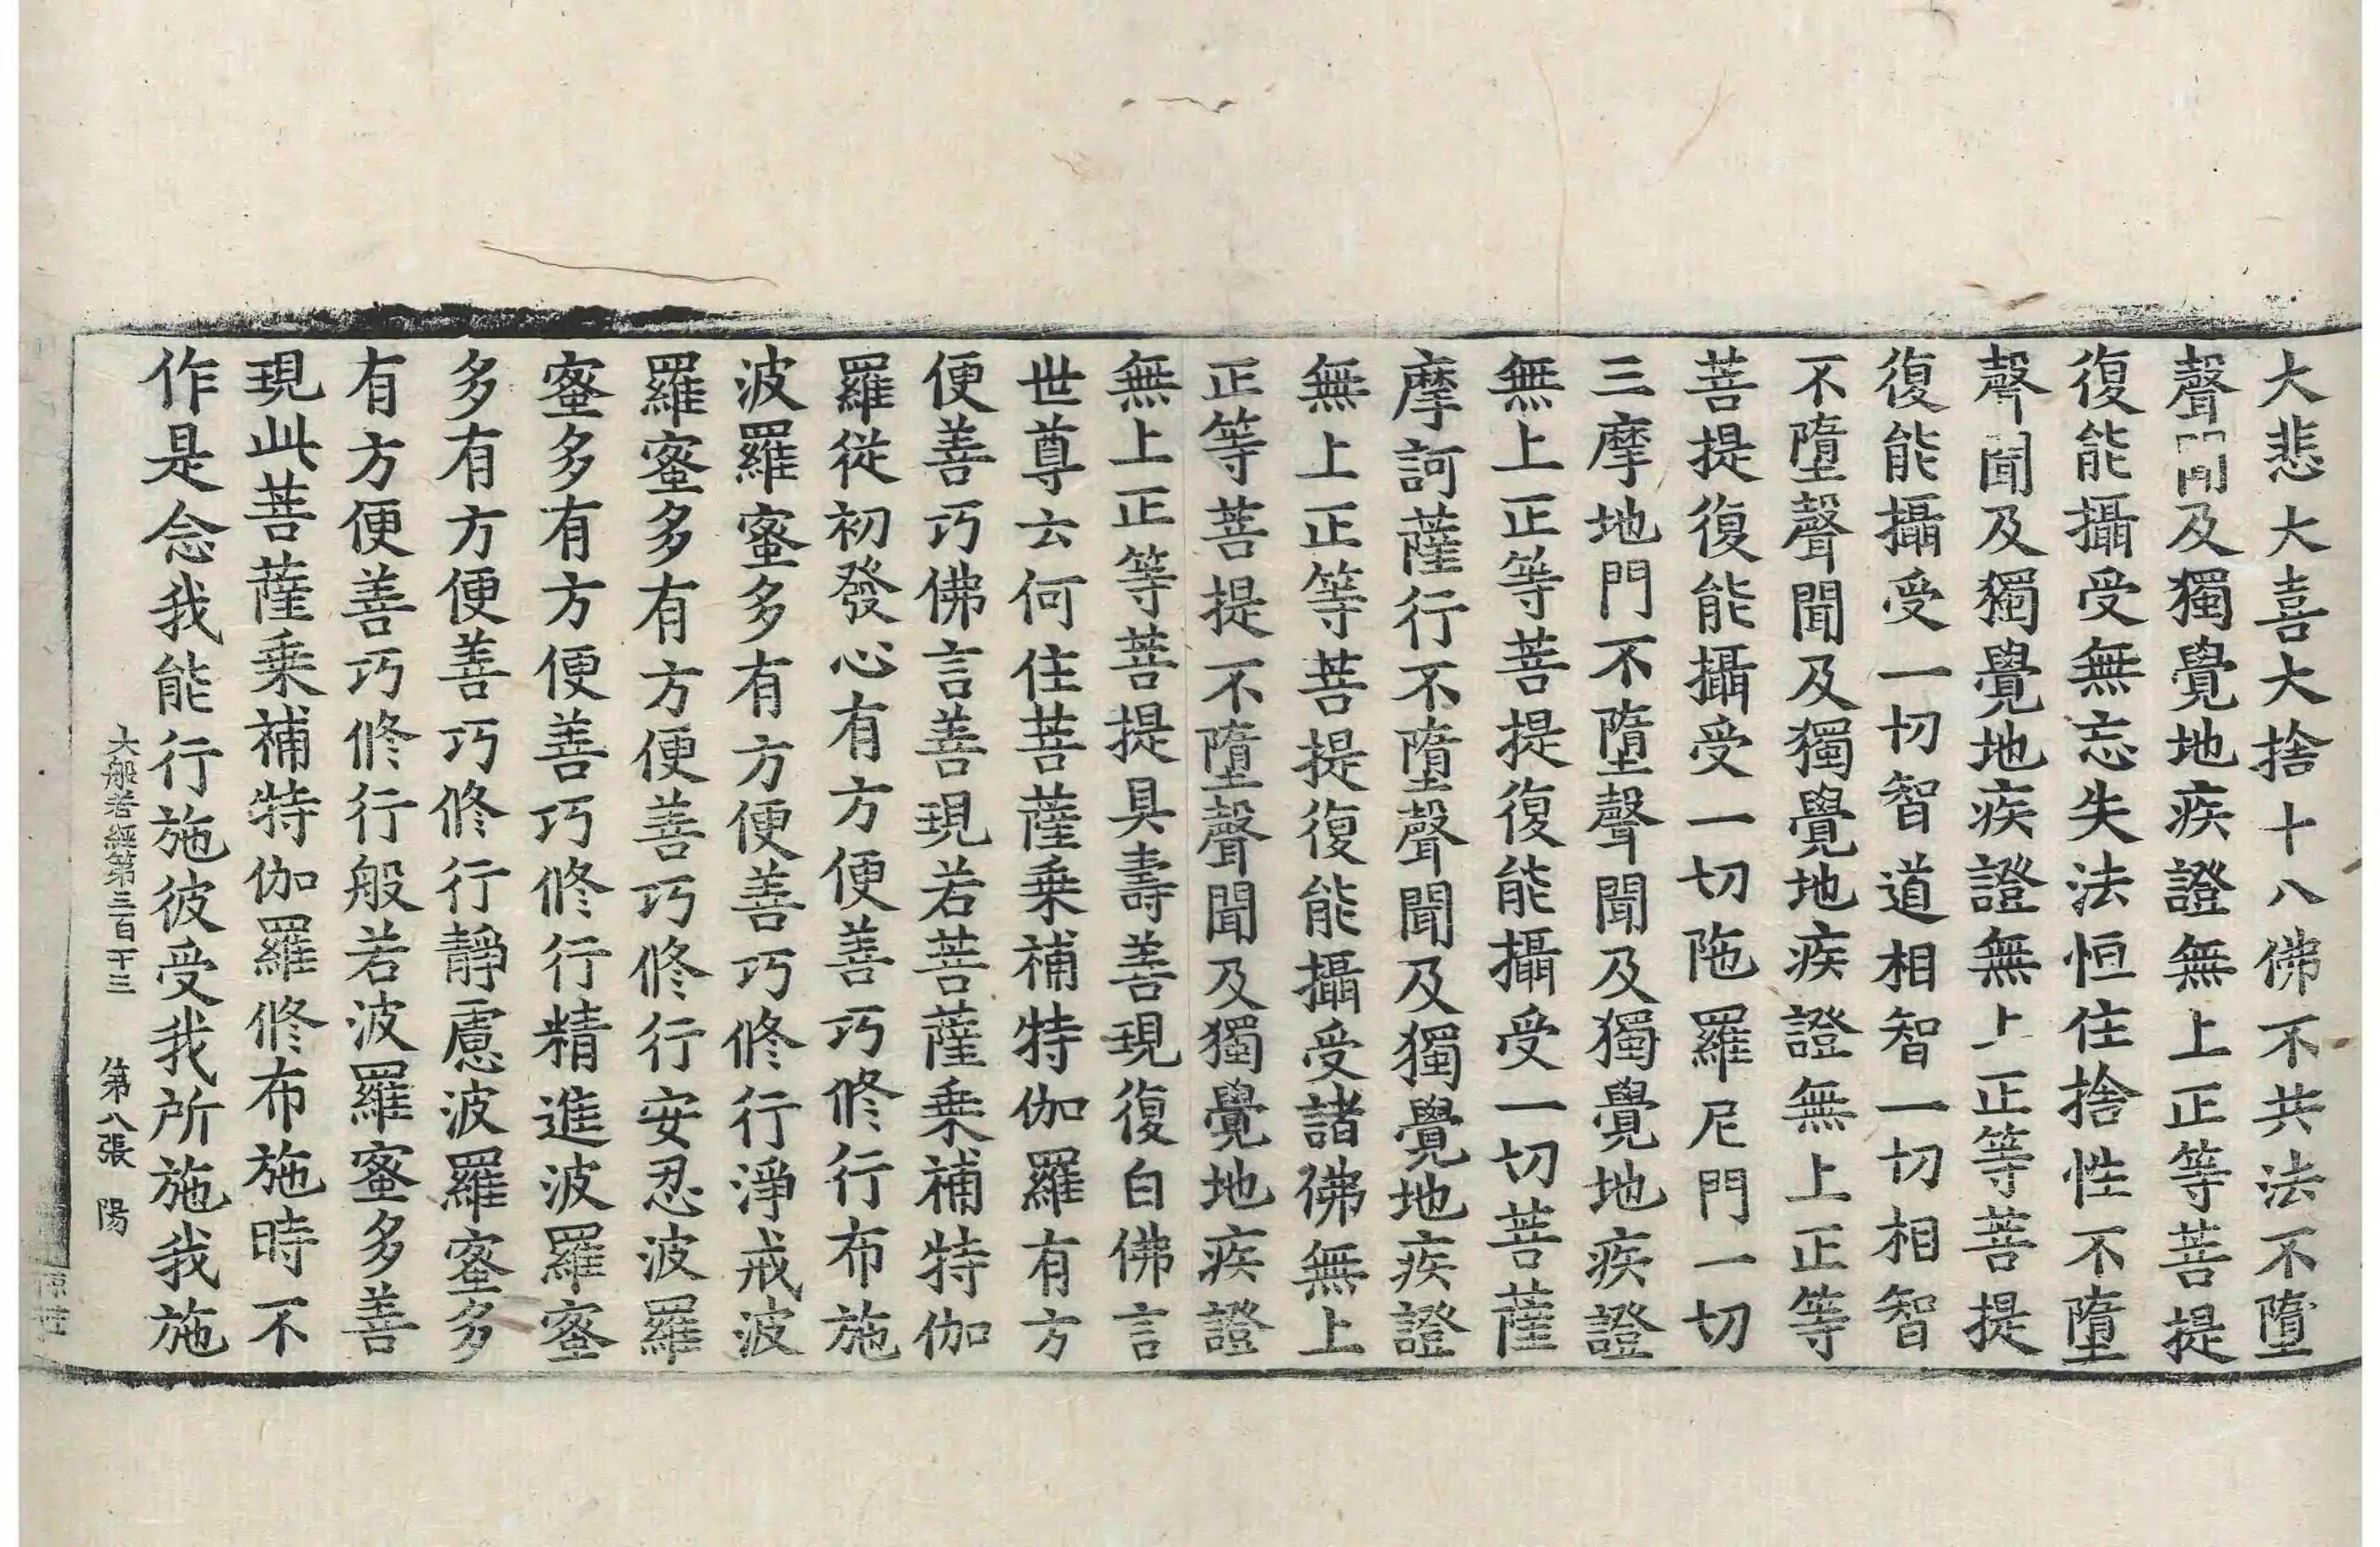 大悲大喜大捨十八佛不共法不墮
聲聞及獨覺地疾證無上正等菩提
復能攝受無忘失法恒住捨性不墮
聲聞及獨覺地疾證無上正等菩提
復能攝受一切智道相智一切相智
不墮聲聞及獨覺地疾證無上正等
菩提復能攝受一切陁羅尼門一切
三摩地門不墮聲聞及獨覺地疾證
無上正等菩提復能攝受一切菩薩
摩訶薩行不墮聲聞及獨覺地疾證
無上正等菩提復能攝受諸佛無上
正等菩提不墮聲聞及獨覺地疾證
無上正等菩提具壽善現復白佛言
世尊云何住菩薩乗補特伽羅有方
便善巧佛言善現若菩薩乗補特伽
羅從初發心有方便善巧修行布施
波羅蜜多有方便善巧修行淨戒波
羅蜜多有方便善巧修行安忍波羅
蜜多有方便善巧修行精進波羅蜜
多有方便善巧修行靜慮波羅蜜多
有方便善巧修行般若波羅蜜多善
現此菩薩乗補特伽羅修布施時不
作是念我能行施彼受我所施我施
大般若經第三百十三 第八張 陽